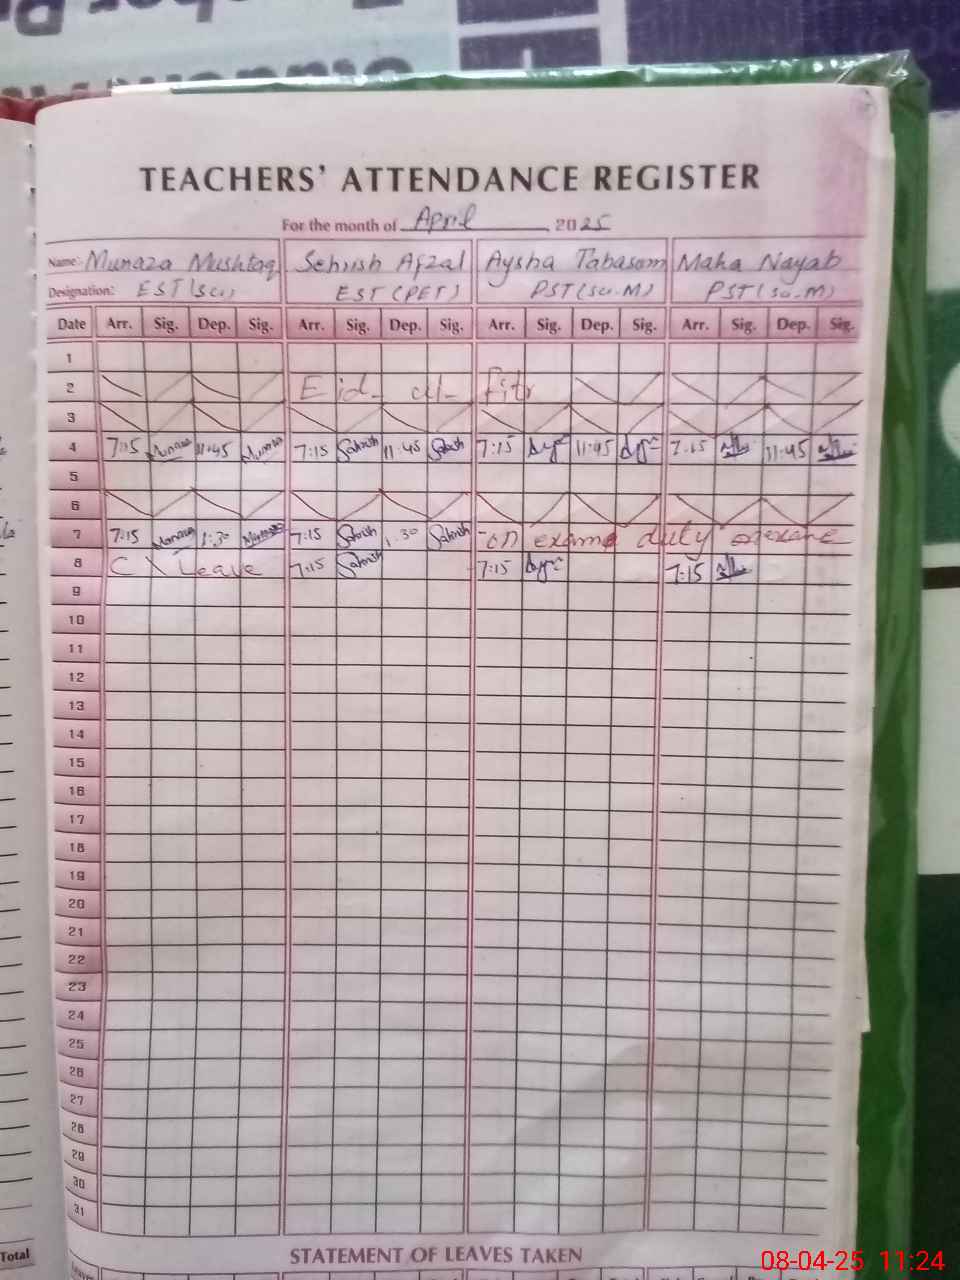 TEACHERS' ATTENDANCE REGISTER
For the month of April 2025
Name:- Munaza Mushtaq Sehrish Afzal Aysha Tabasom Maha Nayab
Designation: EST(Sci) EST(PET) PST(SG.M) PST(SG.M)
Date Arr. Sig. Dep. Sig. Arr. Sig. Dep. Sig. Arr. Sig. Dep. Sig. Arr. Sig. Dep. Sig.
1
2 Eid- ul- Fitr
3
4 7:15 Munaza 11:45 Munaza 7:15 Sehrish 11:45 Sehrish 7:15 11:45 7:15 11:45
5
6
7 7:15 Munaza 1:30 Munaza 7:15 Sehrish 1:30 Sehrish -on exam duty
8 C X Leave 7:15 Sehrish 7:15 7:15
9
10
11
12
13
14
15
16
17
18
19
20
21
22
23
24
25
26
27
28
29
30
31
Total
STATEMENT OF LEAVES TAKEN
08-04-25 11:24